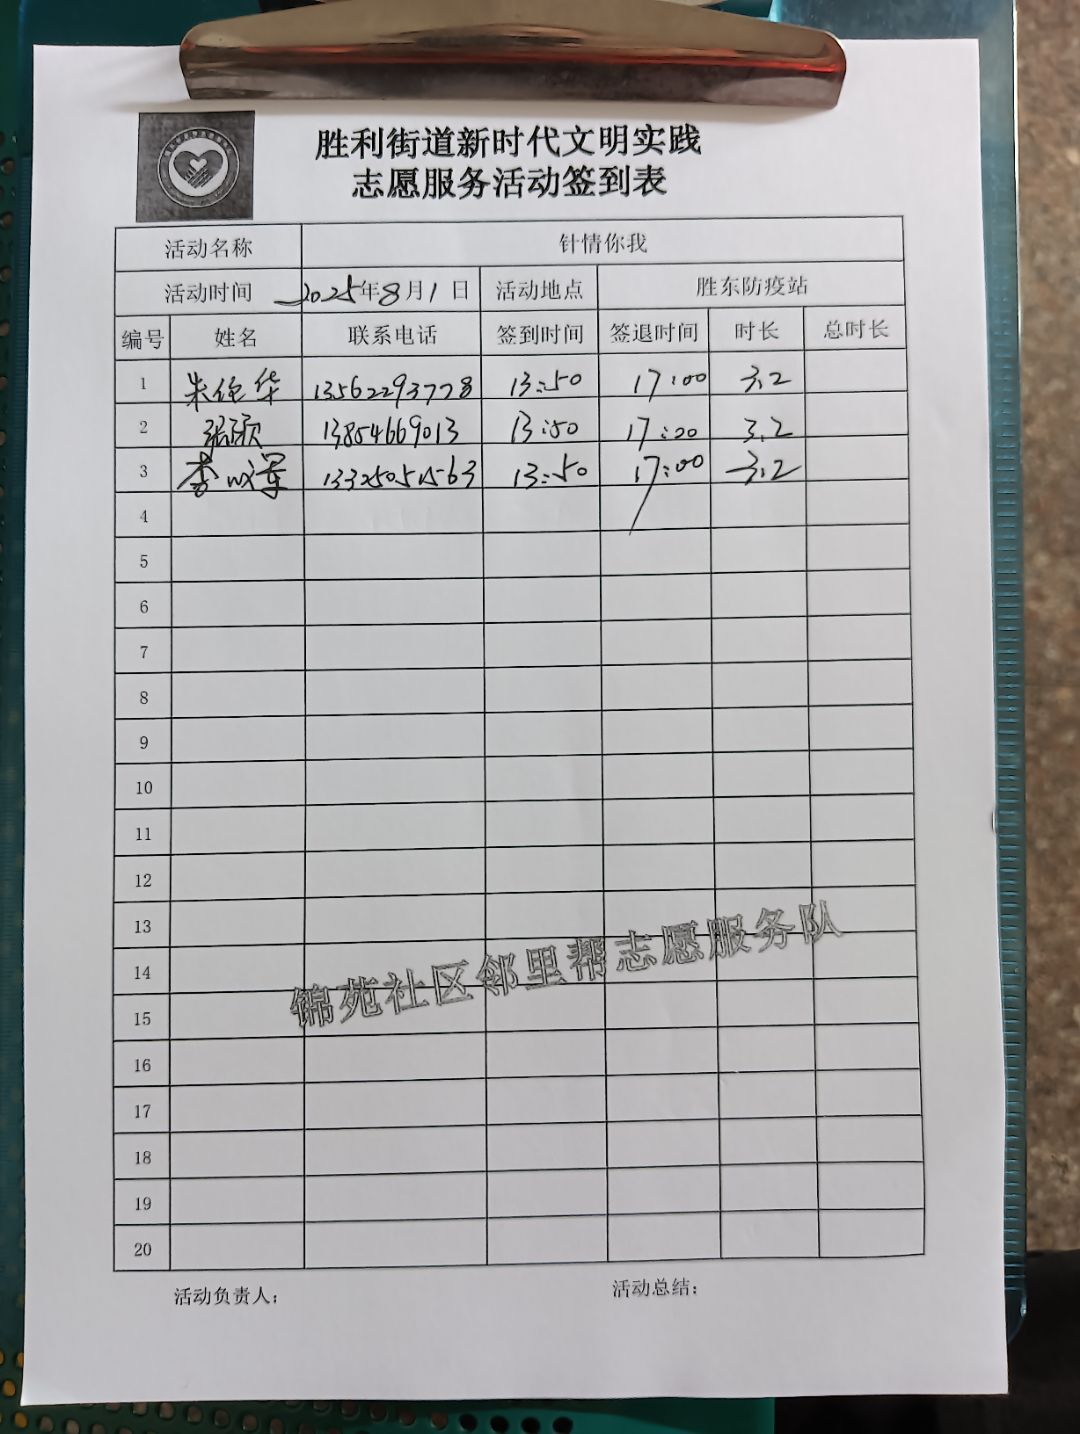 胜利街道新时代文明实践
志愿服务活动签到表
活动名称 针情你我
活动时间 2025年8月1日 活动地点 胜东防疫站
编号 姓名 联系电话 签到时间 签退时间 时长 总时长
1 13562293778 13:50 17:00 3.2
2 张颖 13854669013 13:50 17:00 3.2
3 李 13325051563 13:50 17:00 3.2
4
5
6
7
8
9
10
11
12
13
14
15
16
17
18
19
20
锦苑社区邻里帮志愿服务队
活动负责人: 活动总结: